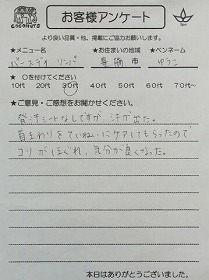 COCONUTS
お客様アンケート
より良い品質・他、掲載にご協力お願いします。
★メニュー名 ★お住まいの地域 ★ペンネーム
バースデイ リンパ 豊橋市 ゆうこ
★ ○を付けてください
10代 20代 30代 40代 50代 60代 70代～
★ご意見・ご感想をお聞かせください。
発汗シートなしですが、汗が出た。
首まわりをていねいにケアしてもらったので
コリがほぐれ、気分が良くなった。
本日はありがとうございました。